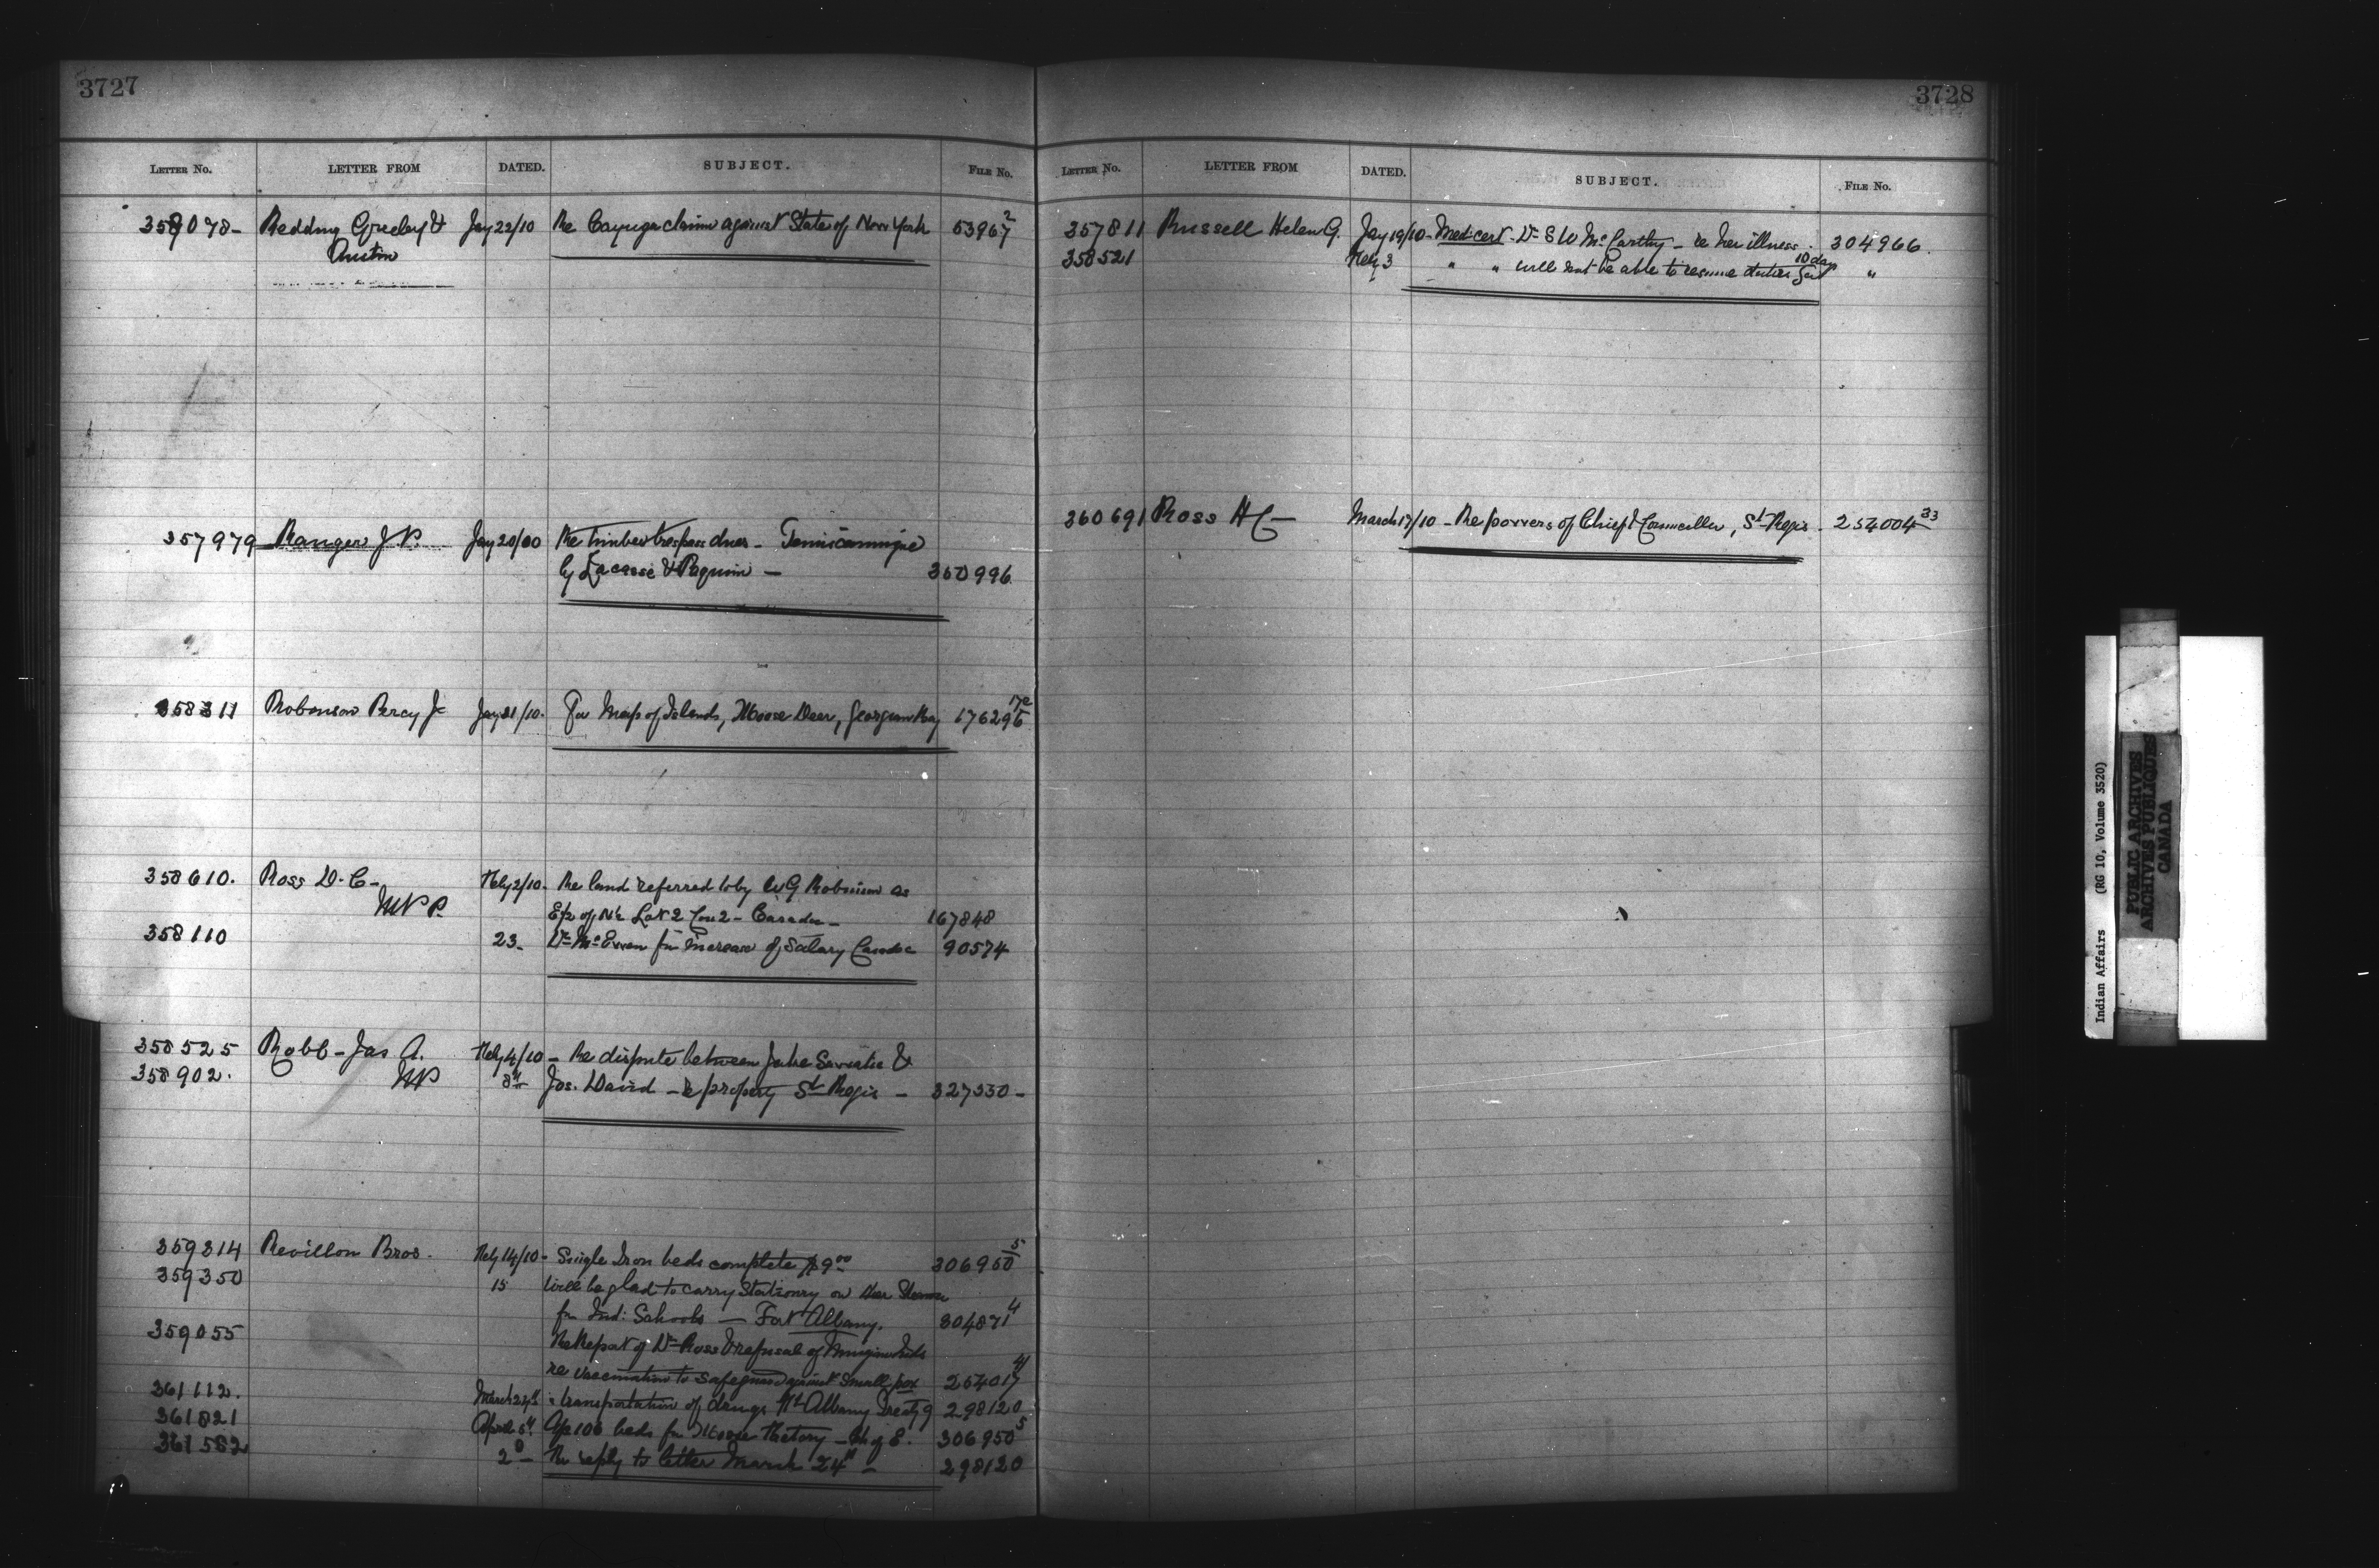 3727
LETTER No. LETTER FROM DATED. SUBJECT. FILE No.
358078- Redding Greeley & Jay 22/10 Re Cayuga claim against State of New York 53967²
Austin
357979 Ranger J.P. Jay 20/00 Re timber trespass dues - Temiscamingue
by Lacasse & Paquin - 350996
358311 Robinson Percy J. Jay 21/10. For Map of Islands, Moose Deer, Georgian Bay 176296
358610. Ross D.C- Feby 2/10. Re land referred to by W G Robinson as
M P. E½ of N½ Lot 2 Con 2 - Caradoc - 167848
358110 23. Dr McEwen for increase of Salary Caradoc 90574
358525 Robb - Jas A. Feby 4/10 - Re dispute between Jake &
358902. MP 8th Jos. David - re property St Regis - 327330 -
359314 Revillon Bros. Feby 14/10 - Single Iron beds complete $9.00 306950⁵
359350 15 Will be glad to carry Stationry on their Steamer
for Ind: Schools - Fort Albany. 304871⁴
359055 Re Report of Dr Ross & refusal of
re vaccination to safeguard against Small pox 254017⁴
361112. March 24th transportation of drugs Ft Albany Treaty 9 298120
361821 April 5th 100 beds for Moose Factory - Ch of E. 306950⁵
361582 2d - Re reply to letter March 24th - 298120
3728
LETTER No. LETTER FROM DATED. SUBJECT. FILE No.
357811 Russell Helen G. Jay 19/10 - Med: cert - Dr S W McCarthy - re her illness. 304966.
358521 Feby 3 " " will not be able to resume duties for 10 days "
360691 Ross H C - March 17/10 - Re powers of Chief & Councillor, St Regis. 254004³³
Indian Affairs (RG 10, Volume 3520)
PUBLIC ARCHIVES
ARCHIVES PUBLIQUES
CANADA